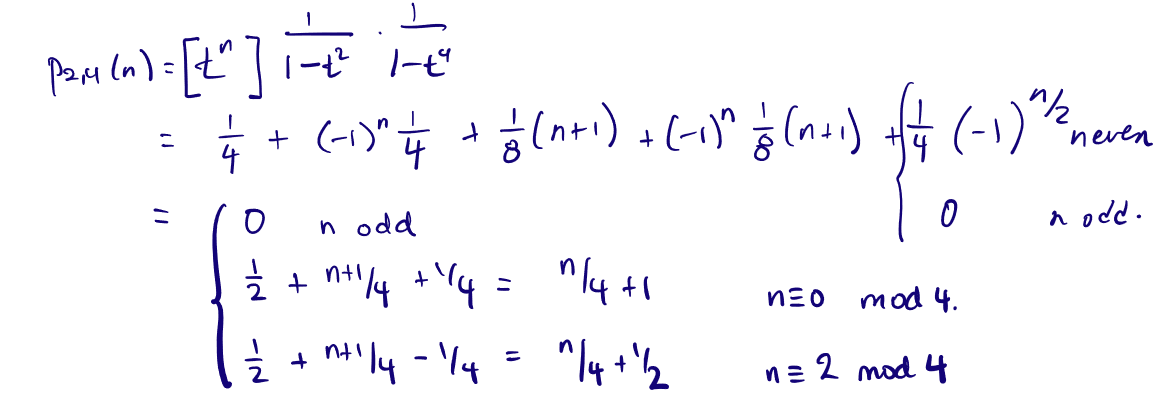 p₂,₄(n) = [tⁿ] 1/(1-t²) · 1/(1-t⁴)
= 1/4 + (-1)ⁿ 1/4 + 1/8 (n+1) + (-1)ⁿ 1/8 (n+1) + { 1/4 (-1)^(n/2) n even
0 n odd.
= { 0 n odd
1/2 + n+1/4 + 1/4 = n/4 + 1 n≡0 mod 4.
1/2 + n+1/4 - 1/4 = n/4 + 1/2 n≡2 mod 4